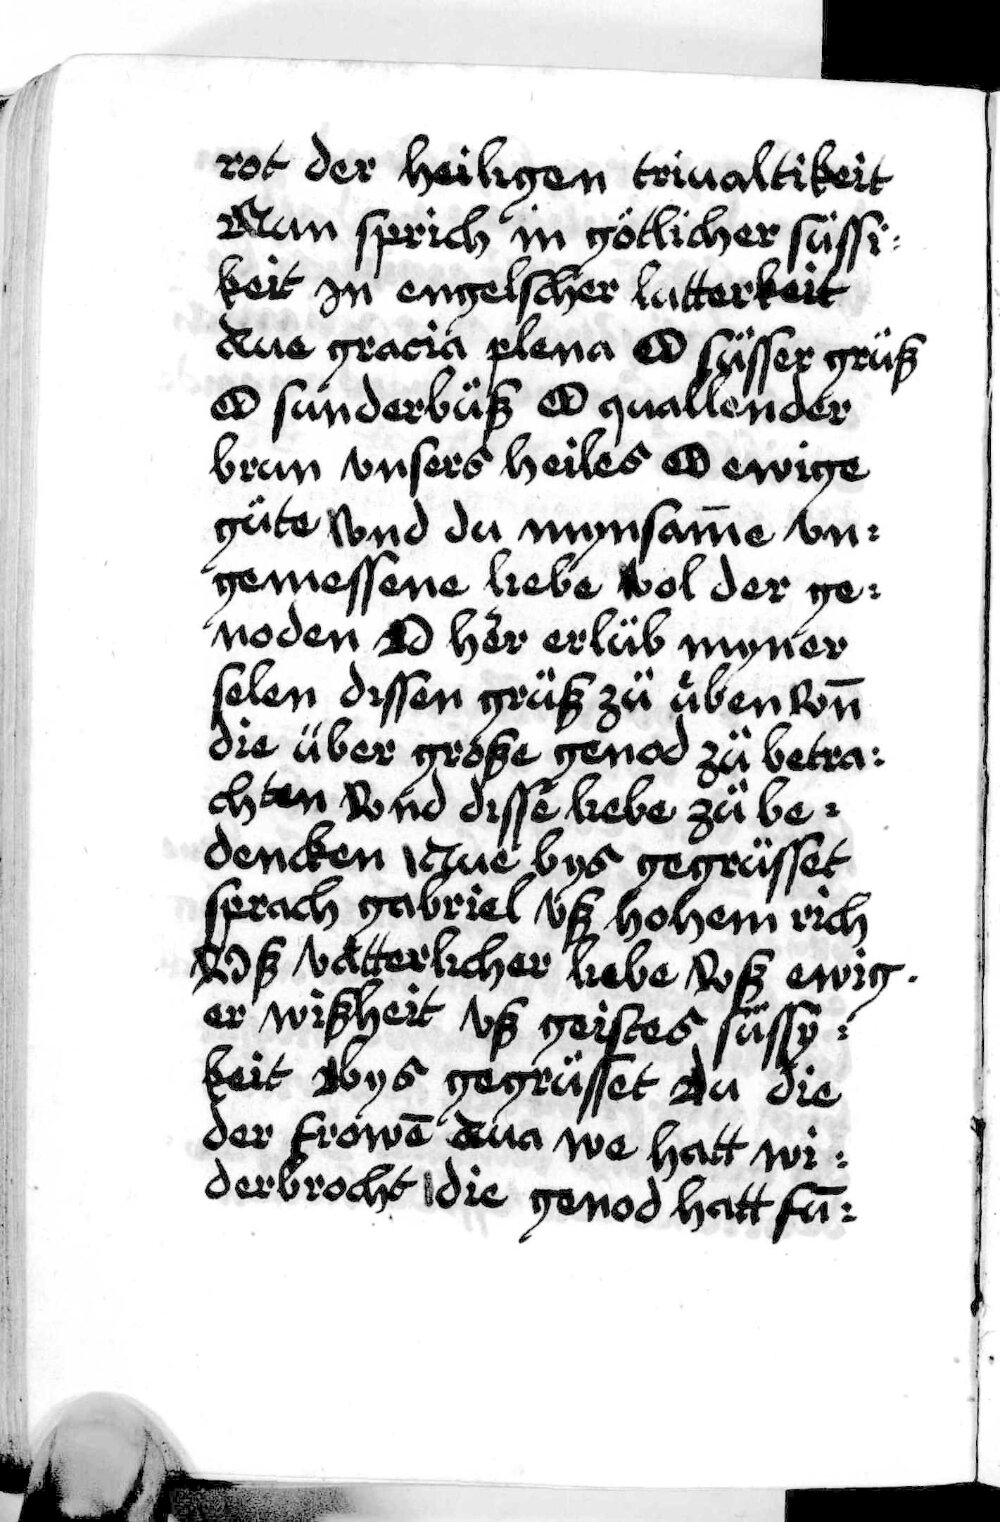 rot der heiligen triualtikeit
Nun sprich in götlicher süssi:
keit jn engelscher lutterkeit
Aue gracia plena O süsser grüß
O sunderbüß O quallender
brun vnsers heiles O ewige
güte Vnd du mynsam̄e vn:
gemessene liebe vol der ge:
noden O her erlüb myner
selen dissen grüß zü üben Vn̄
die über große genod zü betra:
chten Vnd disse liebe zü be:
dencken Aue bys gegrüsset
sprach gabriel vß hohem rich
Vß vätterlicher liebe Vß ewig.
er wißheit vß geistes süssy:
keit bys gegrüsset du die
der frowē Aua we hatt wi:
derbrocht die genod hatt fū: